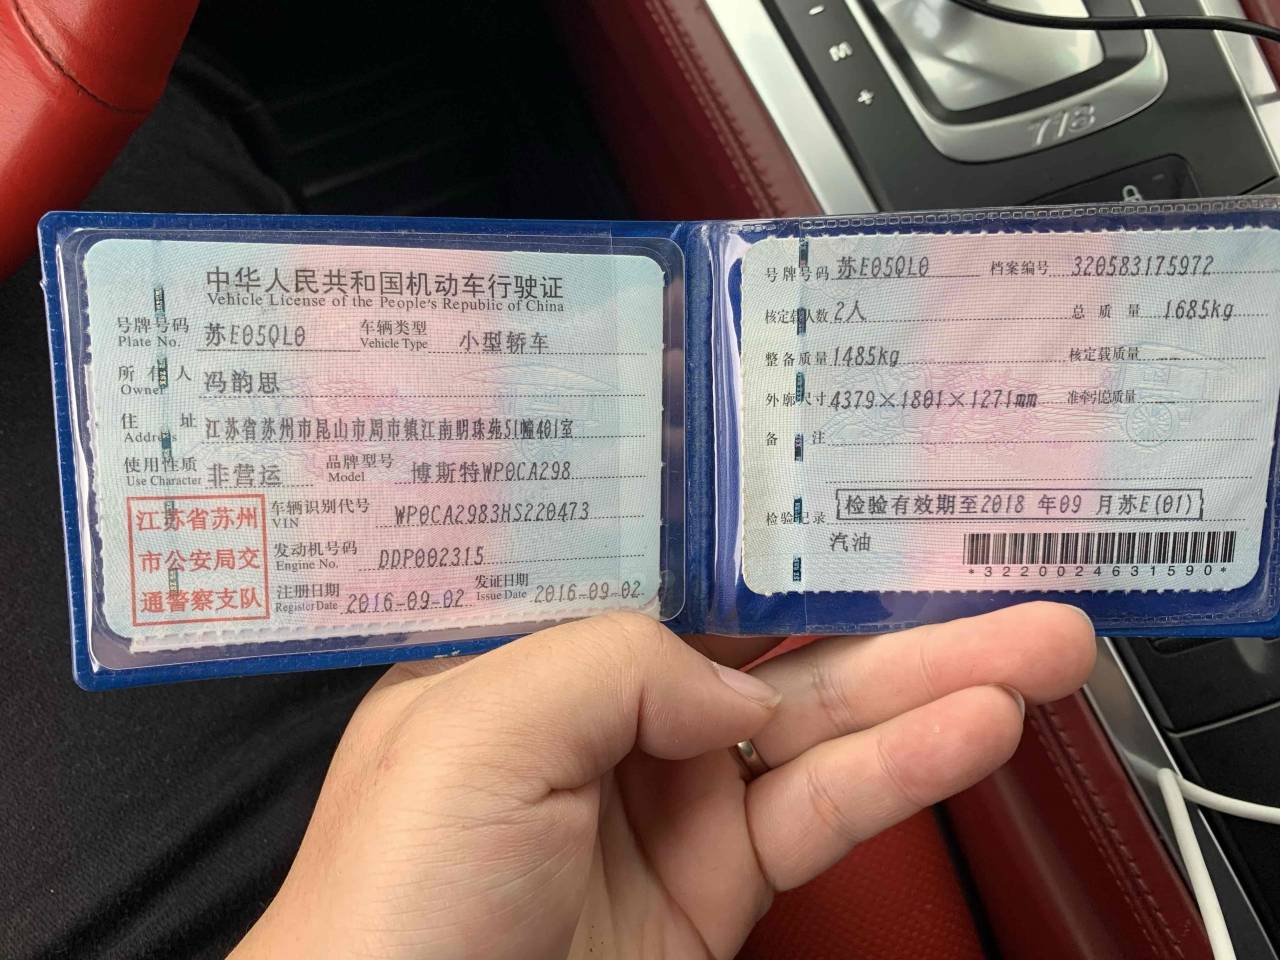 M
+
718
中华人民共和国机动车行驶证
Vehicle License of the People's Republic of China
号牌号码 苏E05QL0 车辆类型 小型轿车
Plate No. Vehicle Type
所有人 冯韵思
Owner
住址 江苏省苏州市昆山市周市镇江南明珠苑51幢401室
Address
使用性质 非营运 品牌型号 博斯特WP0CA298
Use Character Model
江苏省苏州
市公安局交
通警察支队
车辆识别代号 WP0CA2983HS220473
VIN
发动机号码 DDP002315
Engine No.
注册日期 2016-09-02 发证日期 2016-09-02
Register Date Issue Date
号牌号码 苏E05QL0 档案编号 320583175972
核定载人数 2人 总质量 1685kg
整备质量 1485kg 核定载质量
外廓尺寸 4379×1801×1271mm 准牵引总质量
备注
检验记录 检验有效期至2018年09月苏E(01)
汽油
*3220024631590*